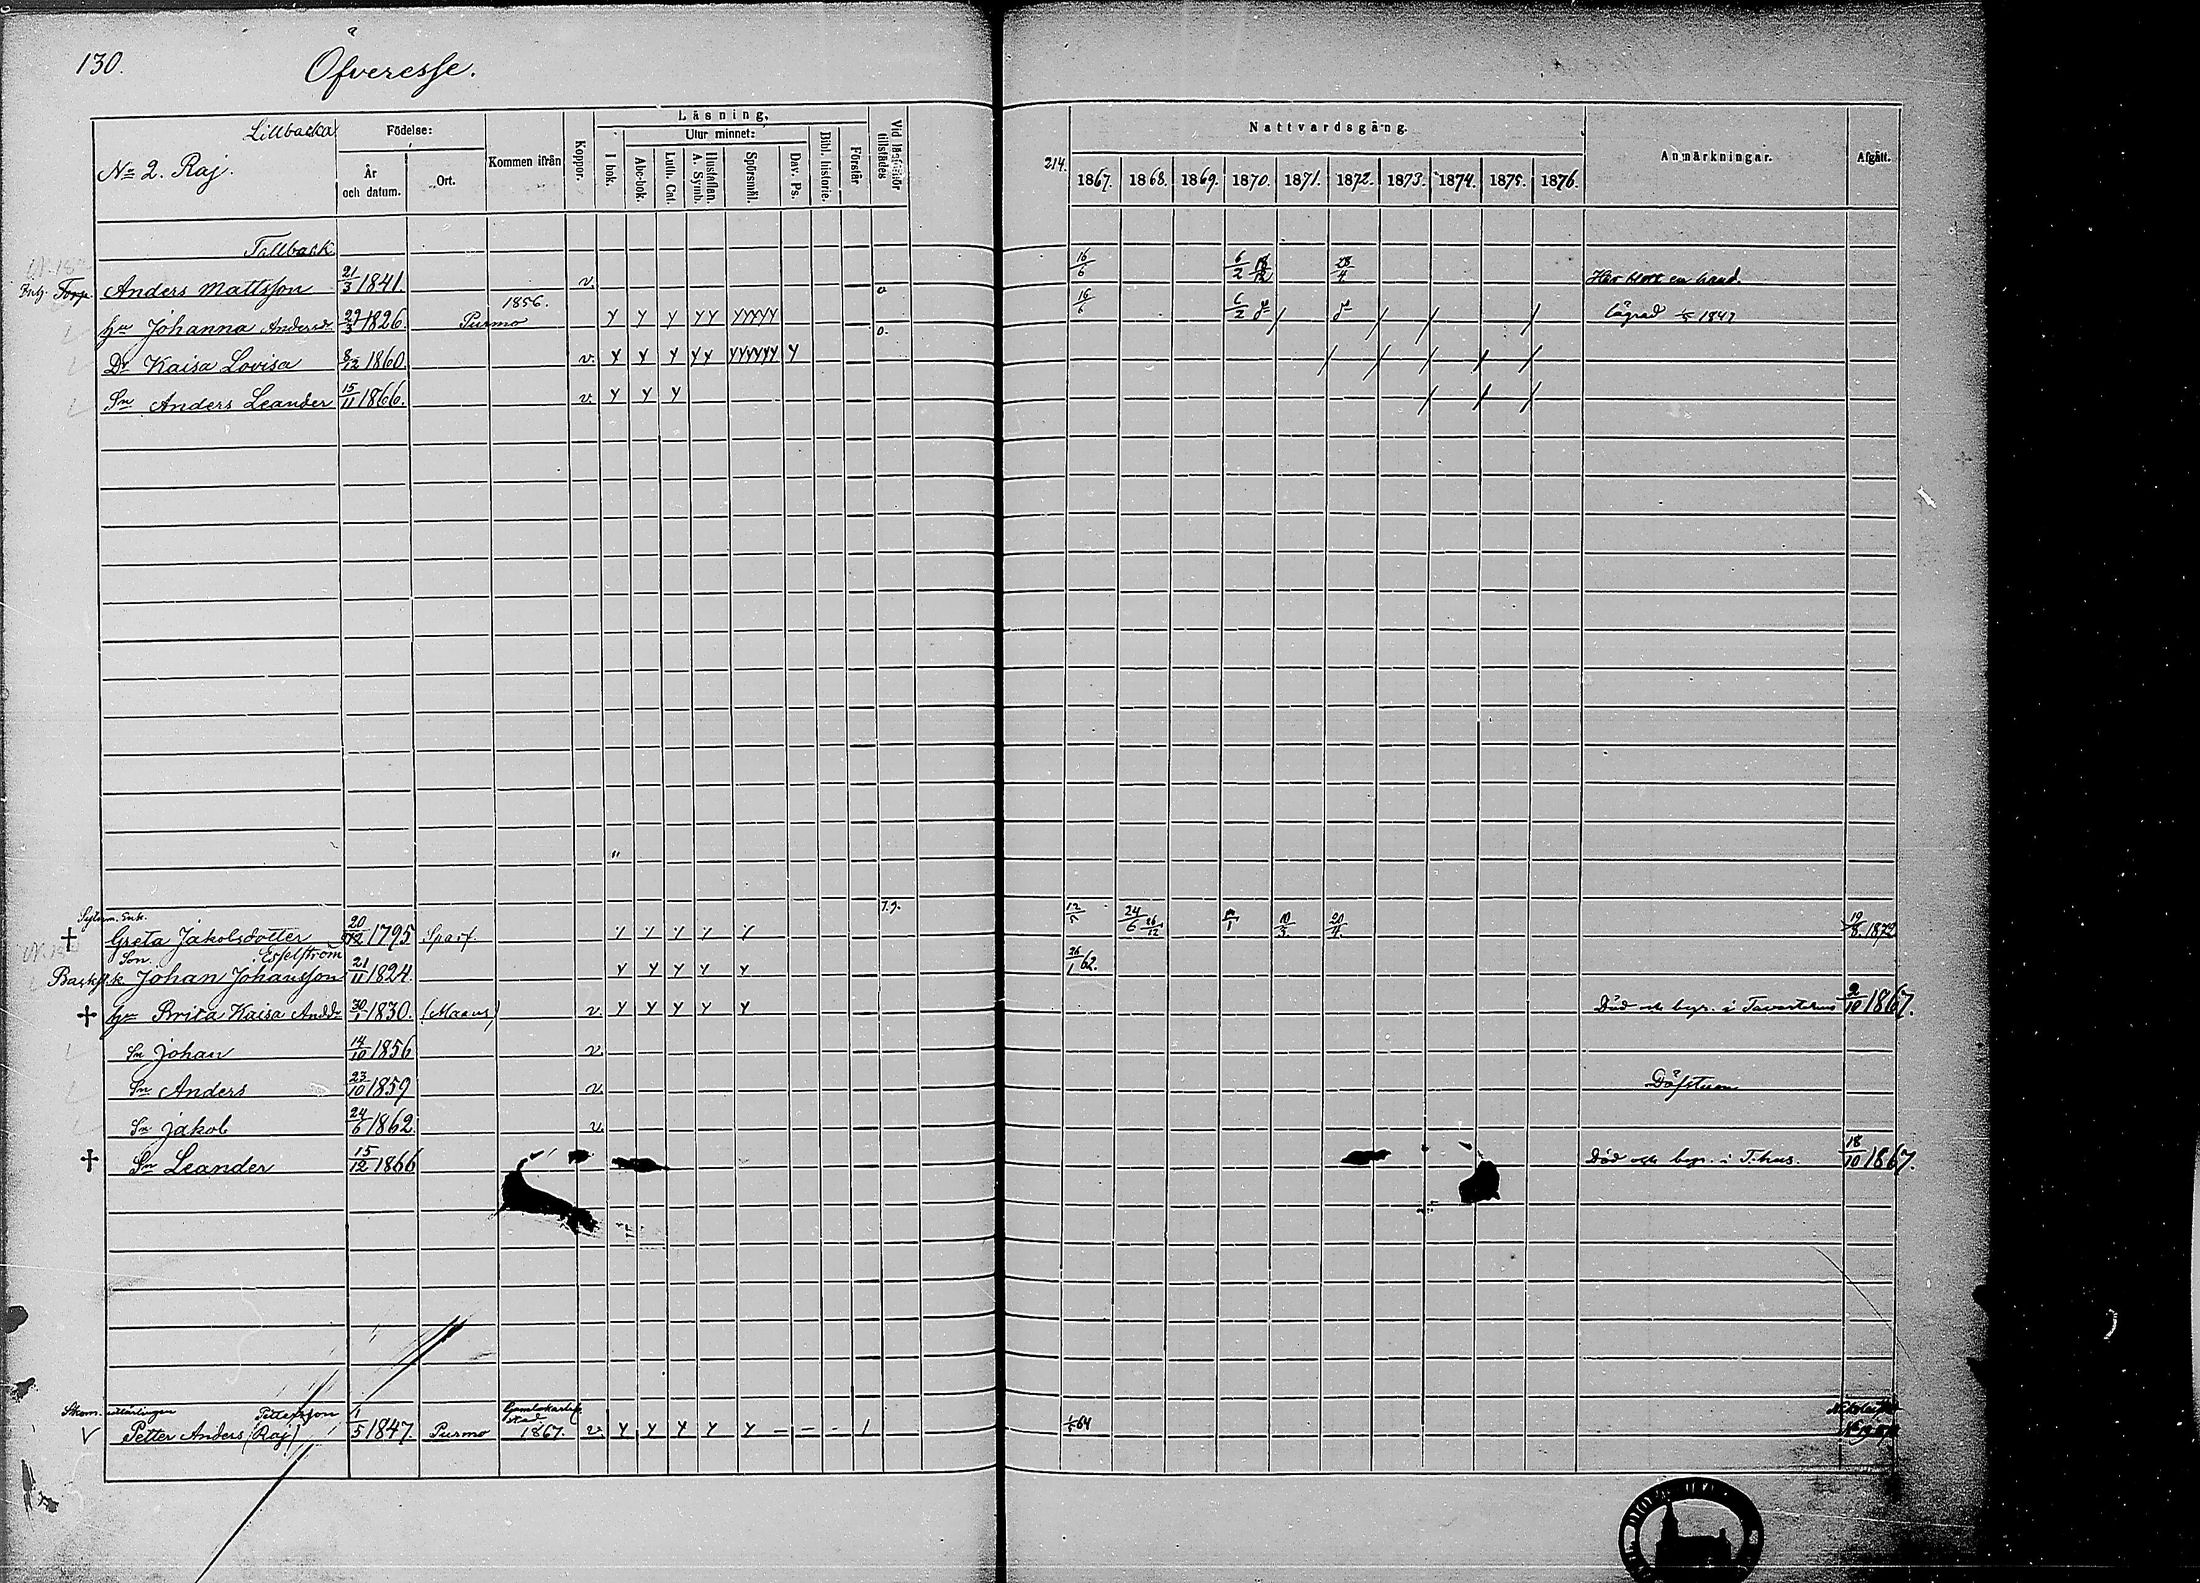 130.
Öfveresse.
Lillbacka
No 2. Raj.
Födelse:
År och datum.
Ort.
Kommen ifrån
Koppor.
Läsning.
I bok.
Utur minnet:
Abc-bok.
Luth. Cat.
Hustaflan. A. Symb.
Spörsmål.
Dav. Ps.
Bibl. historie.
Förstår
Vid läsförhör tillstädes
214.
Nattvardsgång.
1867. 1868. 1869. 1870. 1871. 1872. 1873. 1874. 1875. 1876.
Anmärkningar.
Afgått.
Tallback
Torp. Anders Mattsson 21/3 1841. v. 16/6 6/2 28/4 Har blott en hand.
hu Johanna Andersdr 29/3 1826. Purmo 1856. y y y yy yyyyy o. 16/6 6/2 lägrad 1847
Dr Kaisa Lovisa 8/12 1860. v. y y y yy yyyyyy y
Sn Anders Leander 15/11 1866. v. y y y
† Greta Jakobsdotter 20/12 1795 Sparf. y y y y y 12/5 24/6 26/12 10/3 20/4 19/8 1872
Son. Esselström
Backst.k. Johan Johansson 21/11 1824. y y y y y 26/1 62.
† hu Brita Kaisa Andd. 30/1 1830. (Maans) v. y y y y y Död och begr. i Tavastehus 2/10 1867.
Sn Johan 14/10 1856 v.
Sn Anders 23/10 1859 v. Döfstum
Sn Jakob 24/6 1862. v.
† Sn Leander 15/12 1866 Död och begr. i T:hus. 18/10 1867.
Skom. Pettersson
Petter Anders (Raj) 1/5 1847. Purmo Gamlakarleby stad 1867. v. y y y y y - - - 1 64